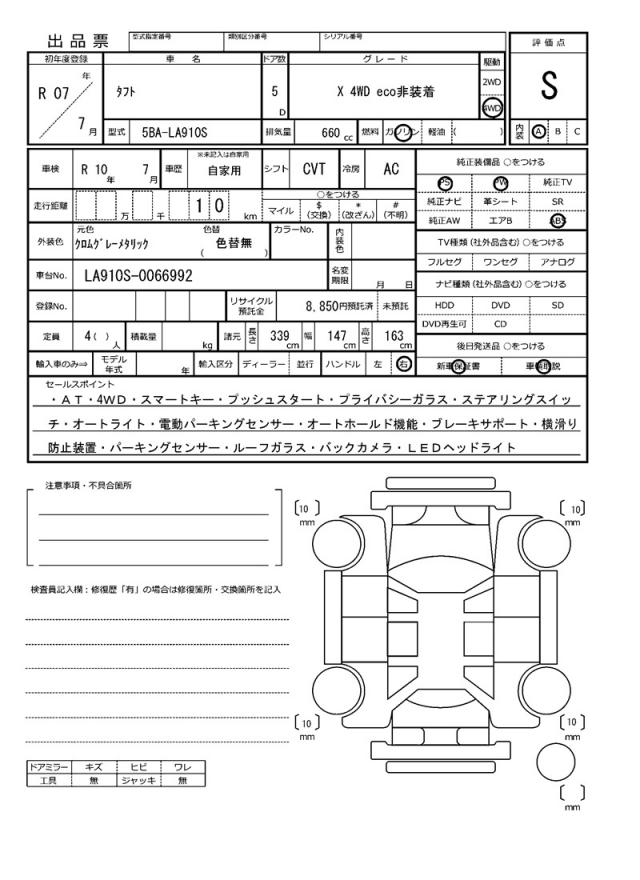 出品票
型式指定番号
類別区分番号
シリアル番号
初年度登録
車 名
ドア数
グレード
駆動
評価点
R 07
年
7
月
タフト
5
D
X 4WD eco非装着
2WD
4WD
S
型式
5BA-LA910S
排気量
660 cc
燃料
ガソリン
軽油
( )
内装
A
B
C
車検
R 10
年
7
月
車歴
※未記入は自家用
自家用
シフト
CVT
冷房
AC
純正装備品 ○をつける
PS
PW
純正TV
走行距離
万
千
1 0
km
○をつける
マイル
$
(交換)
*
(改ざん)
#
(不明)
純正ナビ
革シート
SR
純正AW
エアB
ABS
外装色
元色
クロムグレーメタリック
色替
色替無
( )
カラーNo.
内装色
TV種類 (社外品含む) ○をつける
フルセグ
ワンセグ
アナログ
車台No.
LA910S-0066992
名変期限
月
日
ナビ種類 (社外品含む) ○をつける
登録No.
リサイクル預託金
8,850円預託済
未預託
HDD
DVD
SD
DVD再生可
CD
定員
4( )
人
積載量
kg
諸元
長さ
339
cm
幅
147
cm
高さ
163
cm
後日発送品 ○をつける
輸入車のみ⇒
モデル年式
年
輸入区分
ディーラー
並行
ハンドル
左
右
新車保証書
車輌取説
セールスポイント
・AT・4WD・スマートキー・プッシュスタート・プライバシーガラス・ステアリングスイッ
チ・オートライト・電動パーキングセンサー・オートホールド機能・ブレーキサポート・横滑り
防止装置・パーキングセンサー・ルーフガラス・バックカメラ・LEDヘッドライト
注意事項・不具合箇所
検査員記入欄：修復歴「有」の場合は修復箇所・交換箇所を記入
[ 10 ]
mm
[ 10 ]
mm
[ 10 ]
mm
[ 10 ]
mm
[ ]
mm
ドアミラー
キズ
ヒビ
ワレ
工具
無
ジャッキ
無